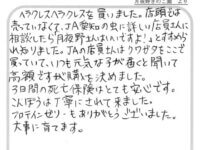 月夜野きのこ園 より
ヘラクレスヘラクレスを買いました。店頭では
売っていなくて、TA堂Koの虫に詳しい店員さんに
相談したら「月夜野さんはいいですよ!」とすすめら
れ知りました。TAの店員さんはクワガタをここで
買っていて、いつも元気な子が届くと聞いて
高額ですが購入を決めました。
3日間の死亡保険はとても安心です。
こんぽうは丁寧にされて来ました。
プロテインゼリーもありがとうございました。
大事に育てます。